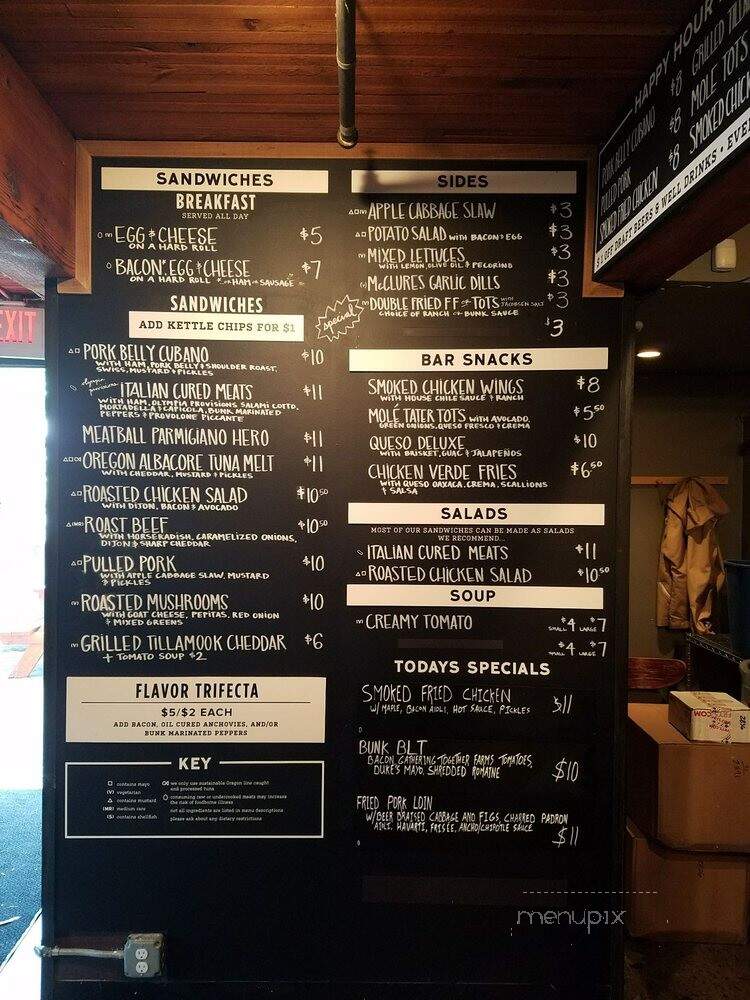 SANDWICHES
BREAKFAST
SERVED ALL DAY
EGG & CHEESE $5
ON A HARD ROLL
BACON*, EGG & CHEESE $7
ON A HARD ROLL *or HAM or SAUSAGE
SANDWICHES
ADD KETTLE CHIPS FOR $1
special
PORK BELLY CUBANO $10
WITH HAM, PORK BELLY & SHOULDER ROAST,
SWISS, MUSTARD & PICKLES
olympia provisions ITALIAN CURED MEATS $11
WITH HAM, OLYMPIA PROVISIONS SALAMI COTTO,
MORTADELLA & CAPICOLA, BUNK MARINATED
PEPPERS & PROVOLONE PICCANTE
MEATBALL PARMIGIANO HERO $11
OREGON ALBACORE TUNA MELT $11
WITH CHEDDAR, MUSTARD & PICKLES
ROASTED CHICKEN SALAD $10.50
WITH DIJON, BACON & AVOCADO
(MR) ROAST BEEF $10.50
WITH HORSERADISH, CARAMELIZED ONIONS,
DIJON & SHARP CHEDDAR
PULLED PORK $10
WITH APPLE CABBAGE SLAW, MUSTARD
& PICKLES
(V) ROASTED MUSHROOMS $10
WITH GOAT CHEESE, PEPITAS, RED ONION
& MIXED GREENS
(V) GRILLED TILLAMOOK CHEDDAR $6
+ TOMATO SOUP $2
FLAVOR TRIFECTA
$5/$2 EACH
ADD BACON, OIL CURED ANCHOVIES, AND/OR
BUNK MARINATED PEPPERS
KEY
contains mayo
(V) vegetarian
contains mustard
(MR) medium rare
(S) contains shellfish
we only use sustainable Oregon line caught
and processed tuna
consuming raw or undercooked meats may increase
the risk of foodborne illness
not all ingredients are listed in menu descriptions
please ask about any dietary restrictions
SIDES
APPLE CABBAGE SLAW $3
POTATO SALAD WITH BACON & EGG $3
(V) MIXED LETTUCES $3
WITH LEMON, OLIVE OIL & PECORINO
(V) McCLURES GARLIC DILLS $3
(V) DOUBLE FRIED FF or TOTS WITH JACOBSEN SALT $3
CHOICE OF RANCH or BUNK SAUCE
$3
BAR SNACKS
SMOKED CHICKEN WINGS $8
WITH HOUSE CHILE SAUCE & RANCH
MOLÉ TATER TOTS WITH AVOCADO, $5.50
GREEN ONIONS, QUESO FRESCO & CREMA
QUESO DELUXE $10
WITH BRISKET, GUAC & JALAPEÑOS
CHICKEN VERDE FRIES $6.50
WITH QUESO OAXACA, CREMA, SCALLIONS
& SALSA
SALADS
MOST OF OUR SANDWICHES CAN BE MADE AS SALADS
WE RECOMMEND...
ITALIAN CURED MEATS $11
ROASTED CHICKEN SALAD $10.50
SOUP
(V) CREAMY TOMATO SMALL $4 LARGE $7
SMALL $4 LARGE $7
TODAYS SPECIALS
SMOKED FRIED CHICKEN $11
W/ MAPLE, BACON AIOLI, HOT SAUCE, PICKLES
BUNK BLT
BACON, GATHERING TOGETHER FARMS TOMATOES, $10
DUKE'S MAYO, SHREDDED ROMAINE
FRIED PORK LOIN
W/ BEER BRAISED CABBAGE AND FIGS, CHARRED PADRON
AIOLI, HAVARTI, FRISEE, ANCHO/CHIPOTLE SAUCE $11
HAPPY HOUR
PORK BELLY CUBANO $8
PULLED PORK $8
SMOKED FRIED CHICKEN $8
GRILLED TILLA
MOLE TOTS
SMOKED CHICK
$1 OFF DRAFT BEERS & WELL DRINKS • EVE
EXIT
menupix